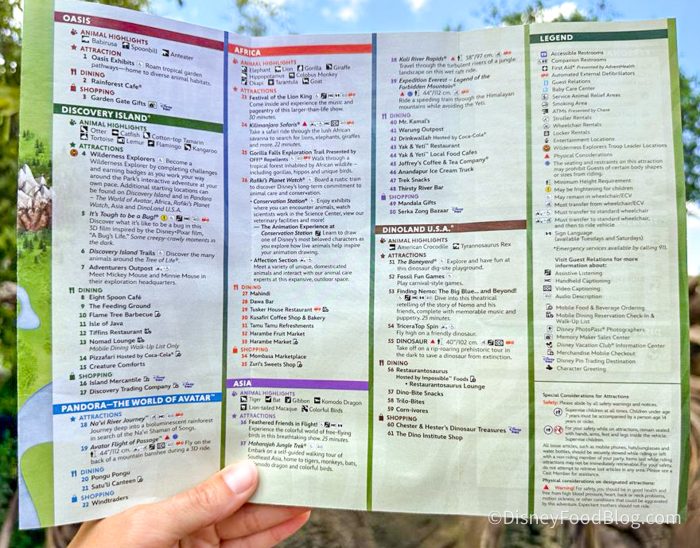 OASIS
ANIMAL HIGHLIGHTS
Babirusa Spoonbill Anteater
ATTRACTION
1 Oasis Exhibits Roam tropical garden
pathways—home to diverse animal habitats.
DINING
2 Rainforest Cafe®
SHOPPING
3 Garden Gate Gifts
DISCOVERY ISLAND®
ANIMAL HIGHLIGHTS
Otter Catfish Cotton-top Tamarin
Tortoise Lemur Flamingo Kangaroo
ATTRACTIONS
4 Wilderness Explorers Become a
Wilderness Explorer by completing challenges
and earning badges as you work your way
around the Park's interactive adventure at your
own pace. Additional starting locations can
be found on Discovery Island and in Pandora
– The World of Avatar, Africa, Rafiki's Planet
Watch, Asia and DinoLand U.S.A.
5 It's Tough to be a Bug!®
Discover what it's like to be a bug in this
3D film inspired by the Disney•Pixar film,
"A Bug's Life." Some creepy-crawly moments in
the dark.
6 Discovery Island Trails Discover the many
animals around the Tree of Life®.
7 Adventurers Outpost
Meet Mickey Mouse and Minnie Mouse in
their exploration headquarters.
DINING
8 Eight Spoon Café
9 The Feeding Ground
10 Flame Tree Barbecue
11 Isle of Java
12 Tiffins Restaurant
13 Nomad Lounge
Mobile Dining Walk-Up List Only
14 Pizzafari Hosted by Coca-Cola®
15 Creature Comforts
SHOPPING
16 Island Mercantile
17 Discovery Trading Company
PANDORA—THE WORLD OF AVATAR™
ATTRACTIONS
18 Na'vi River Journey™
Journey deep into a bioluminescent rainforest
in search of the Na'vi Shaman of Songs.
19 Avatar Flight of Passage™
44"/112 cm Fly on the
back of a mountain banshee during a 3D ride.
DINING
20 Pongu Pongu
21 Satu'li Canteen
SHOPPING
22 Windtraders
AFRICA
ANIMAL HIGHLIGHTS
Elephant Lion Gorilla Giraffe
Hippopotamus Colobus Monkey
Okapi Tarantula Goat
ATTRACTIONS
23 Festival of the Lion King
Come inside and experience the music and
pageantry of this larger-than-life show.
30 minutes.
24 Kilimanjaro Safaris®
Take a safari ride through the lush African
savanna to search for lions, elephants, giraffes
and more. 22 minutes.
25 Gorilla Falls Exploration Trail Presented by
OFF!® Repellents Walk through a
tropical forest inhabited by African wildlife –
including gorillas, hippos and unique birds.
26 Rafiki's Planet Watch® Board a rustic train
to discover Disney's long-term commitment to
animal care and conservation.
• Conservation Station® Enjoy exhibits
where you can encounter animals, watch
scientists work in the Science Center, view our
veterinary facilities and more!
— The Animation Experience at
Conservation Station Learn to draw
one of Disney's most beloved characters as
you explore how live animals help inspire
your animation drawing.
• Affection Section
Meet a variety of unique, domesticated
animals and interact with our animal care
experts at this expansive, outdoor space.
DINING
27 Mahindi
28 Dawa Bar
29 Tusker House Restaurant
30 Kusafiri Coffee Shop & Bakery
31 Tamu Tamu Refreshments
32 Harambe Fruit Market
33 Harambe Market
SHOPPING
34 Mombasa Marketplace
35 Zuri's Sweets Shop
ASIA
ANIMAL HIGHLIGHTS
Tiger Bat Gibbon Komodo Dragon
Lion-tailed Macaque Colorful Birds
ATTRACTIONS
36 Feathered Friends in Flight!
Experience the colorful world of free-flying
birds in this breathtaking show. 25 minutes.
37 Maharajah Jungle Trek®
Embark on a self-guided walking tour of
Southeast Asia, home to tigers, monkeys, bats,
Komodo dragon and colorful birds.
38 Kali River Rapids® 38"/97 cm.
Travel through the turbulent rivers of a jungle
landscape on this wet raft ride.
39 Expedition Everest – Legend of the
Forbidden Mountain®
44"/112 cm
Ride a speeding train through the Himalayan
mountains while avoiding the Yeti.
DINING
40 Mr. Kamal's
41 Warung Outpost
42 Drinkwallah Hosted by Coca-Cola®
43 Yak & Yeti™ Restaurant
44 Yak & Yeti™ Local Food Cafes
45 Joffrey's Coffee & Tea Company®
46 Anandapur Ice Cream Truck
47 Trek Snacks
48 Thirsty River Bar
SHOPPING
49 Mandala Gifts
50 Serka Zong Bazaar
DINOLAND U.S.A.®
ANIMAL HIGHLIGHTS
American Crocodile Tyrannosaurus Rex
ATTRACTIONS
51 The Boneyard® Explore and have fun at
this dinosaur dig-site playground.
52 Fossil Fun Games
Play carnival-style games.
53 Finding Nemo: The Big Blue... and Beyond!
Dive into this theatrical
retelling of the story of Nemo and his
friends, complete with memorable music and
puppetry. 25 minutes.
54 TriceraTop Spin
Fly high on a friendly dinosaur.
55 DINOSAUR 40"/102 cm.
Take off on a rip-roaring prehistoric tour in
the dark to save a dinosaur from extinction.
DINING
56 Restaurantosaurus
Hosted by Impossible™ Foods
• Restaurantosaurus Lounge
57 Dino-Bite Snacks
58 Trilo-Bites
59 Corn-ivores
SHOPPING
60 Chester & Hester's Dinosaur Treasures
61 The Dino Institute Shop
LEGEND
Accessible Restrooms
Companion Restrooms
First Aid® Presented by AdventHealth
Automated External Defibrillators
Guest Relations
Baby Care Center
Service Animal Relief Areas
Smoking Area
ATMs Presented by Chase
Stroller Rentals
Wheelchair Rentals
Locker Rentals
Entertainment Locations
Wilderness Explorers Troop Leader Locations
Physical Considerations
The seating and restraints on this attraction
may prohibit Guests of certain body shapes
or sizes from riding.
Minimum Height Requirement
May be frightening for children
May remain in wheelchair/ECV
Must transfer from wheelchair/ECV
Must transfer to standard wheelchair
Must transfer to standard wheelchair,
and then to ride vehicle
Sign Language
(available Tuesdays and Saturdays).
*Emergency services available by calling 911.
Visit Guest Relations for more
information about:
Assistive Listening
Handheld Captioning
Video Captioning
Audio Description
Mobile Food & Beverage Ordering
Mobile Dining Reservation Check-In &
Walk-Up List
Disney PhotoPass® Photographers
Memory Maker Sales Center
Disney Vacation Club® Information Center
Merchandise Mobile Checkout
Disney Pin Trading Destination
Character Greeting
Special Considerations for Attractions
Safety: Please abide by all safety warnings and notices.
Supervise children at all times. Children under age
7 years must be accompanied by a person age 14
years or older.
For your safety while on attractions, remain seated
with hands, arms, feet and legs inside the vehicle.
Supervise children.
Physical considerations on designated attractions:
Warning! For safety, you should be in good health and
free from high blood pressure, heart, back or neck problems,
motion sickness, or other conditions that could be aggravated
by this adventure. Expectant mothers should not ride.
©DisneyFoodBlog.com